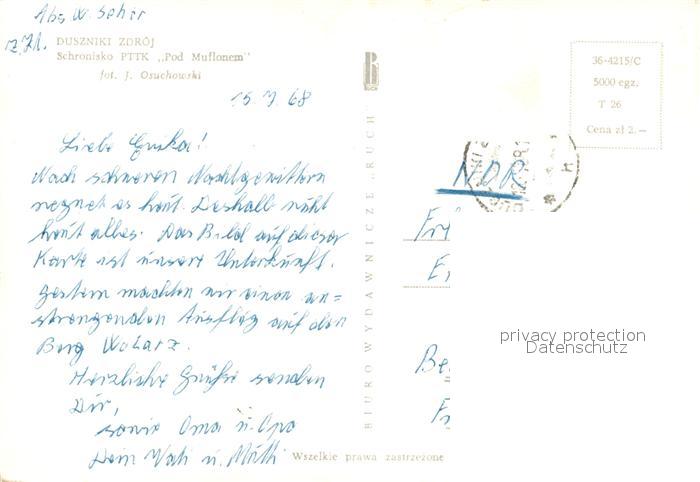 Abs W. Seher
z. Zt.
DUSZNIKI ZDRÓJ
Schronisko PTTK „Pod Muflonem"
fot. J. Osuchowski
15 7 68
Liebe Erika!
Nach schweren Nachtgewittern
regnet es heut. Deshalb ruht
heut alles. Das Bild auf dieser
Karte ist unsere Unterkunft.
Gestern machten wir einen an=
strengenden Ausflug auf den
Berg
Herzliche Grüße senden
Dir,
sowie Oma u. Opa
Dein Vati u. Mutti
Wszelkie prawa zastrzeżone
BIURO WYDAWNICZE „RUCH"
36-4215/C
5000 egz.
T 26
Cena zł 2.—
NDR
privacy protection
Datenschutz